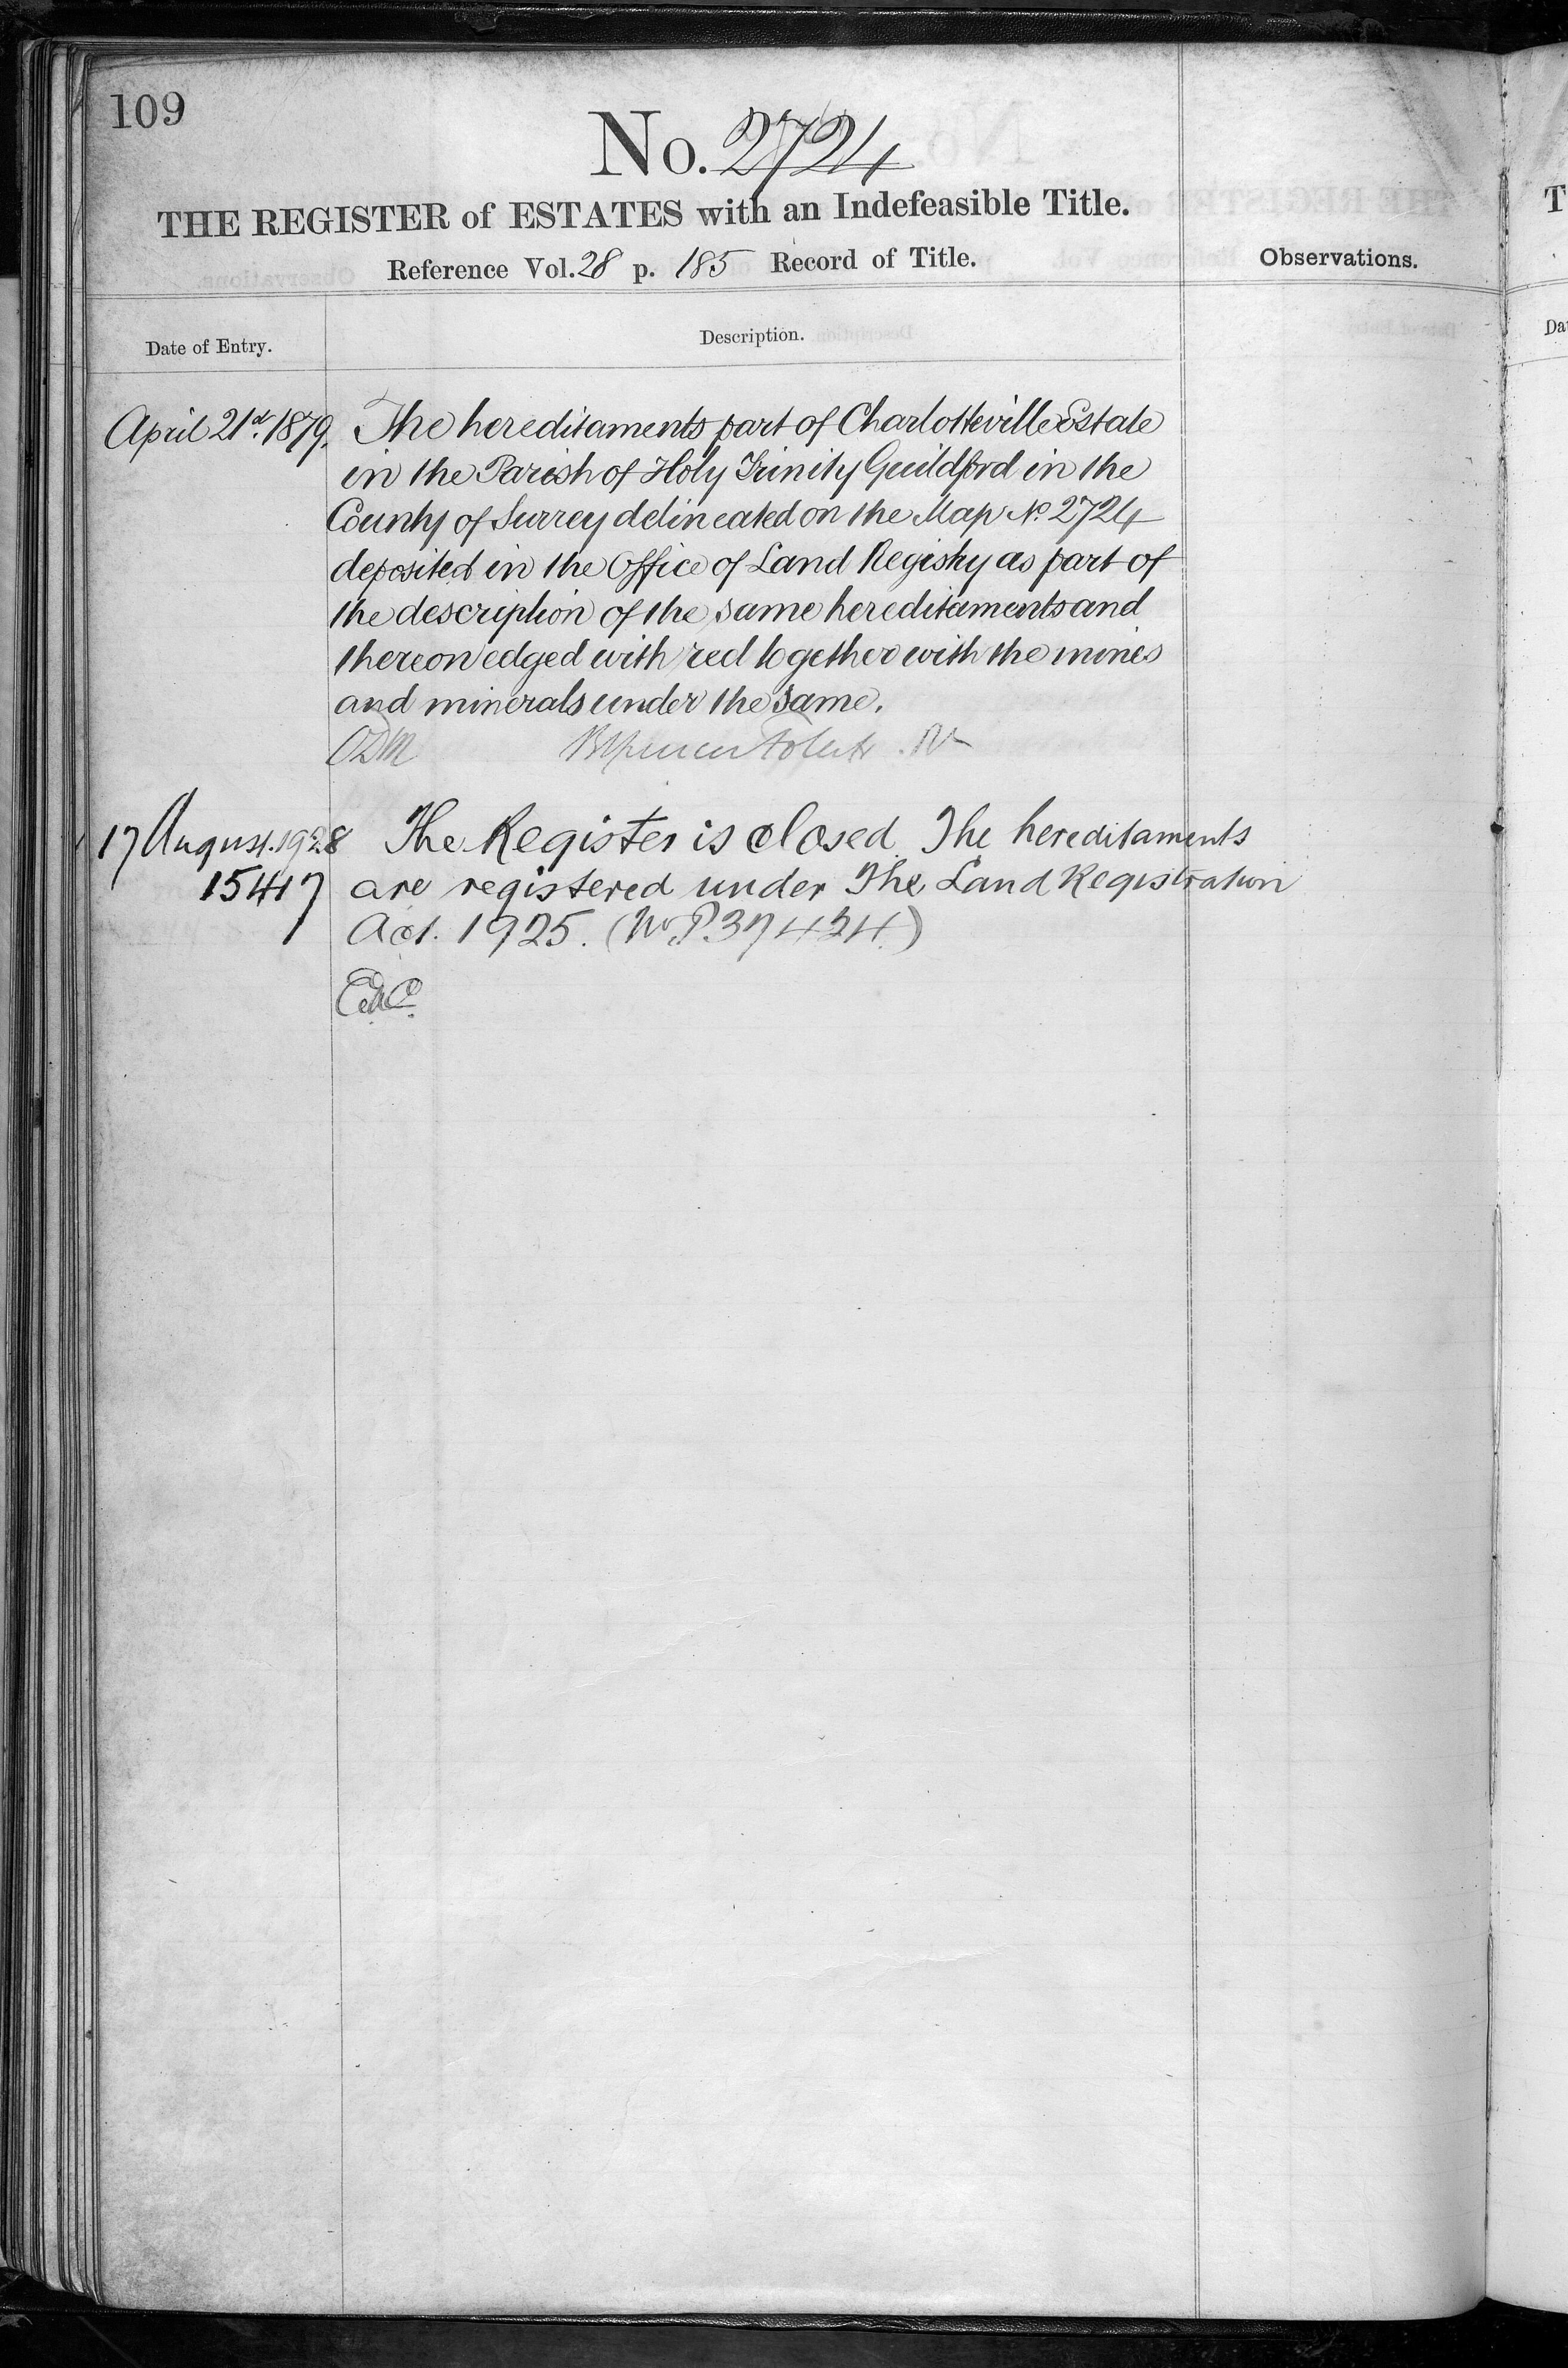 109
No. 2724
THE REGISTER of ESTATES with an Indefeasible Title.
Reference Vol. 28 p. 185 Record of Title.
Observations.
Date of Entry.
Description.
April 21st. 1879. The hereditaments part of Charlotteville Estate
in the Parish of Holy Trinity Guildford in the
County of Surrey delineated on the Map No. 2724
deposited in the Office of Land Registry as part of
the description of the same hereditaments and
thereon edged with red together with the mines
and minerals under the same.
17 August. 1928 The Register is closed. The hereditaments
15417 are registered under The Land Registration
Act. 1925. (No P.37424.)